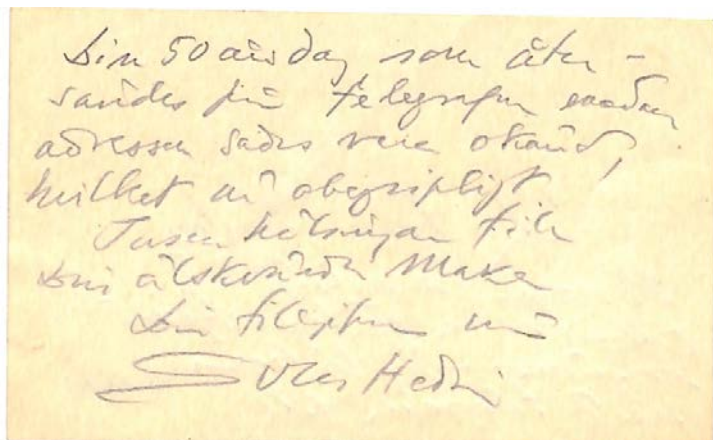 Din 50 årsdag som åter-
sändes från telegrafen emedan
adressen sades vara okänd,
hvilket är obegripligt
Tusen hälsningar till
Din älskvärda Maka
Din tillgifne vän
Sven Hedin